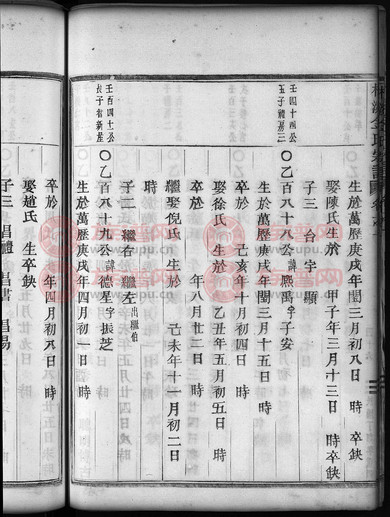 生於萬歷庚戌年閏三月初八日 時 卒缺
娶陳氏生於 甲子年三月十三日 時卒缺
子三 台 宇 顯
壬四十四公
五子
〇乙百八十八公諱熙萬字子安
生於萬歷庚戌年閏三月十五日 時
卒於 己亥年十月初四日 時
娶徐氏 生於 乙丑年五月初五日 時
卒於 年八月廿二日 時
繼娶倪氏 生於 己未年十一月初二日
時
子二 繼右 繼左出繼伯
壬百四十公
長子
〇乙百八十九公諱德星字振芝
生於萬歷庚戌年四月初一日 時
卒於 年四月初九日 時
娶趙氏 生卒缺
子三 昌禮 昌書 昌易